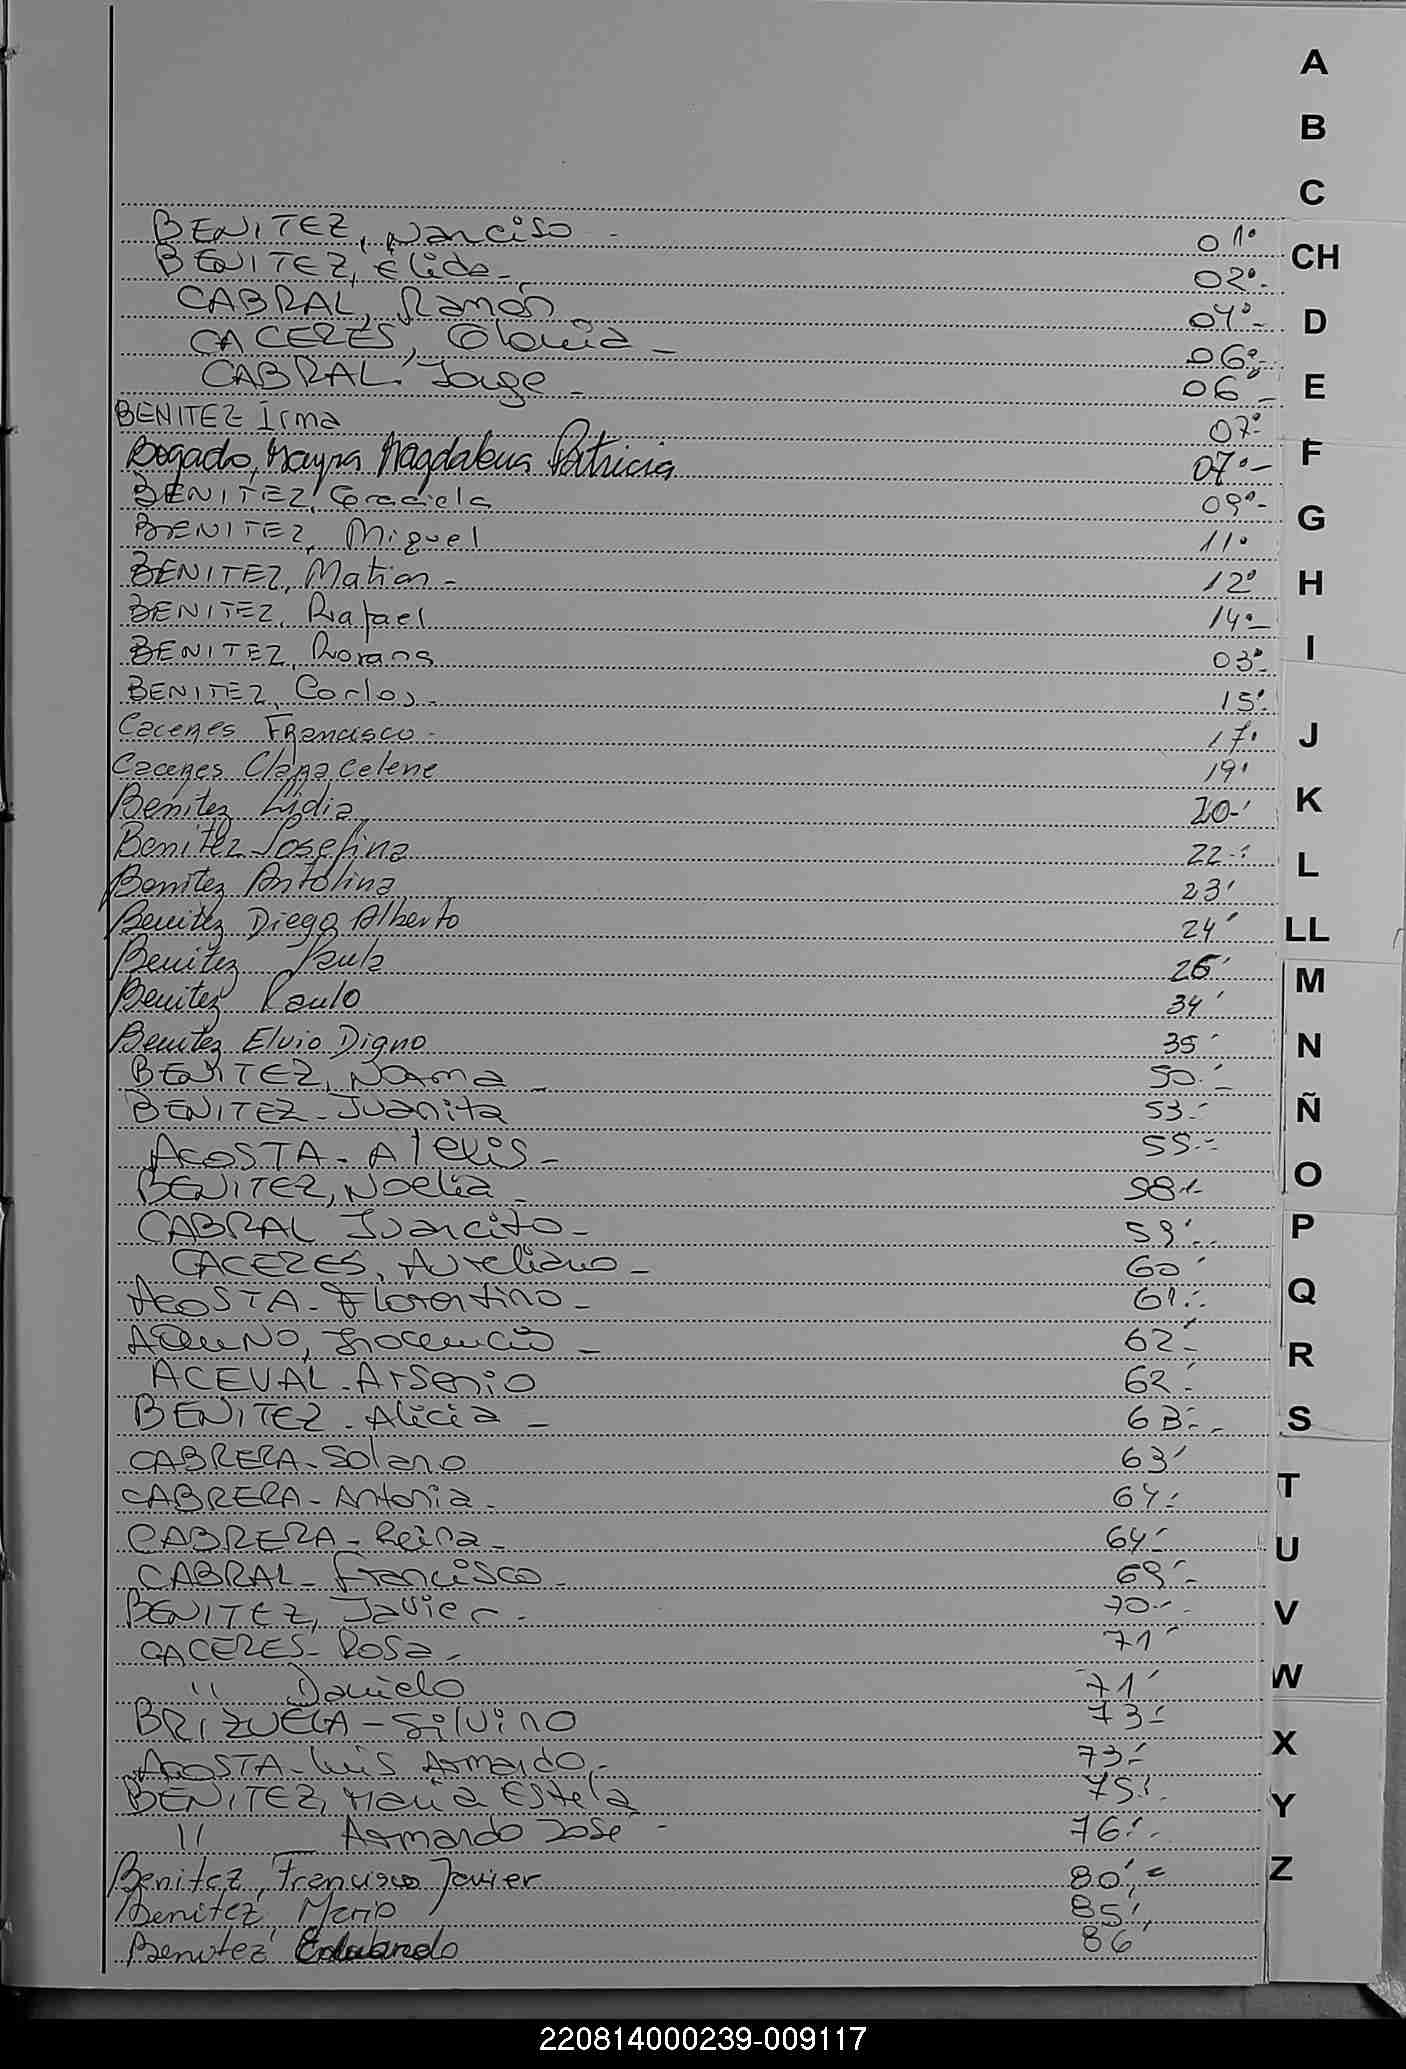 BENITEZ, Narciso - 01º
BENITEZ, Elida - 02º-
CABRAL, Ramón 04º-
CACERES, Gloria - 06º-
CABRAL, Jorge - 06º-
BENITEZ Irma 07º
Bogado, Mayra Magdalena Patricia 07º-
BENITEZ, Graciela 09º-
BENITEZ, Miguel 11º
BENITEZ, Matias - 12º
BENITEZ, Rafael 14º-
BENITEZ, Roxana 03º-
BENITEZ, Carlos - 15º-
Caceres Francisco - 17'
Caceres Clara Celene 19'
Benitez Lidia 20-'
Benitez Josefina 22-'
Benitez Antolina 23'
Benitez Diego Alberto 24'
Benitez Paula 26'
Benitez Paulo 34'
Benitez Elvio Digno 35'
BENITEZ, Norma - 50'-
BENITEZ - Juanita 53-'
ACOSTA - Alexis - 55-'
BENITEZ, Noelia - 58'-
CABRAL Juancito - 59'-
CACERES, Aureliano - 60'
ACOSTA - Florentino - 61'-
AQUINO, Inocencio - 62'-
ACEVAL - Arsenio 62'-
BENITEZ - Alicia - 63'-
CABRERA - Solano 63'
CABRERA - Antonia - 64'-
CABRERA - Reina - 64'-
CABRAL - Francisco - 69'-
BENITEZ, Javier - 70'-
CACERES - Rosa - 71'
" Daniela 71'
BRIZUELA - Silvino 73'-
ACOSTA - Luis Armando - 73'-
BENITEZ, Maria Estela 75'-
" Armando Jose - 76'-
Benitez, Francisco Javier 80'-
Benitez, Mario 85'
Benitez Eduardo 86
A
B
C
CH
D
E
F
G
H
I
J
K
L
LL
M
N
Ñ
O
P
Q
R
S
T
U
V
W
X
Y
Z
220814000239-009117